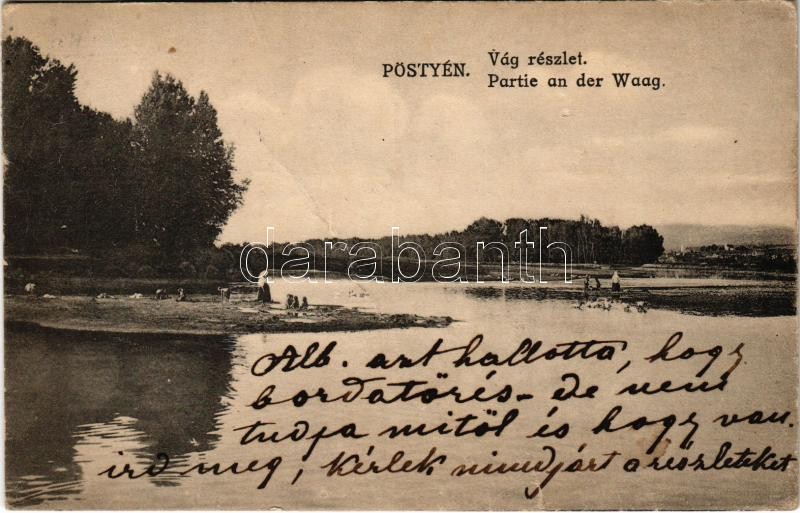 PÖSTYÉN.
Vág részlet.
Partie an der Waag.
darabanth
Alb. azt hallotta, hogy
bordatörés - de nem
tudja mitöl és hogy van.
ird meg, kérlek mindjárt a részleteket